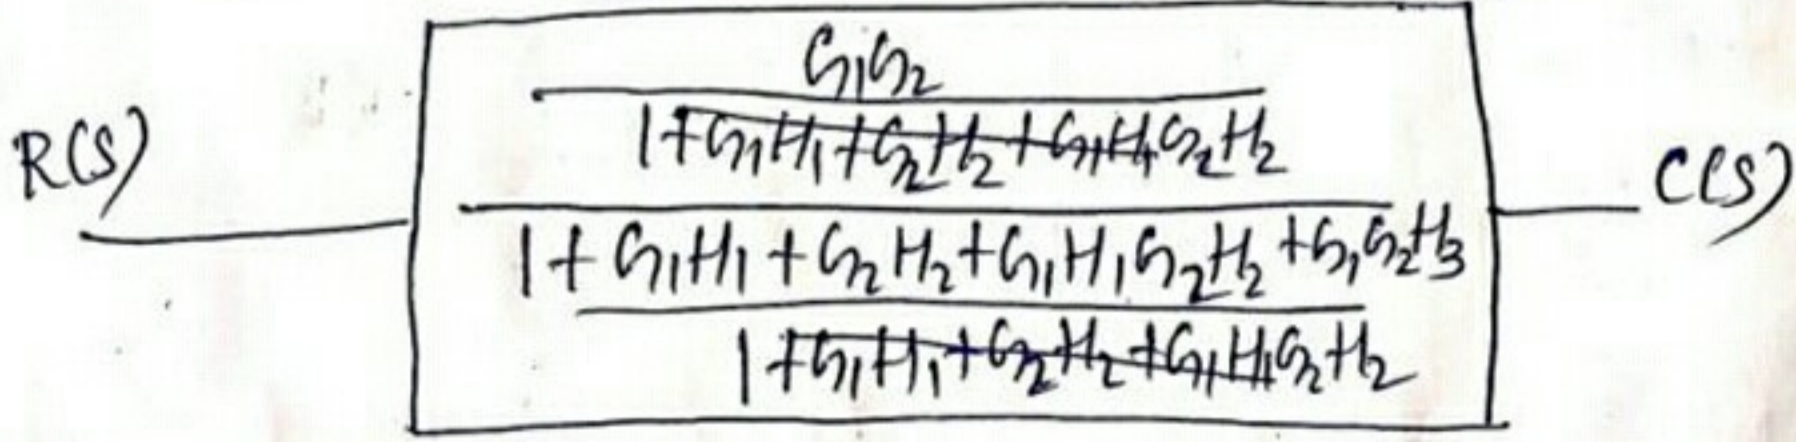 G₁G₂
1+G₁H₁+G₂H₂+G₁H₁G₂H₂
R(S)
C(S)
1+G₁H₁+G₂H₂+G₁H₁G₂H₂+G₁G₂H₃
1+G₁H₁+G₂H₂+G₁H₁G₂H₂